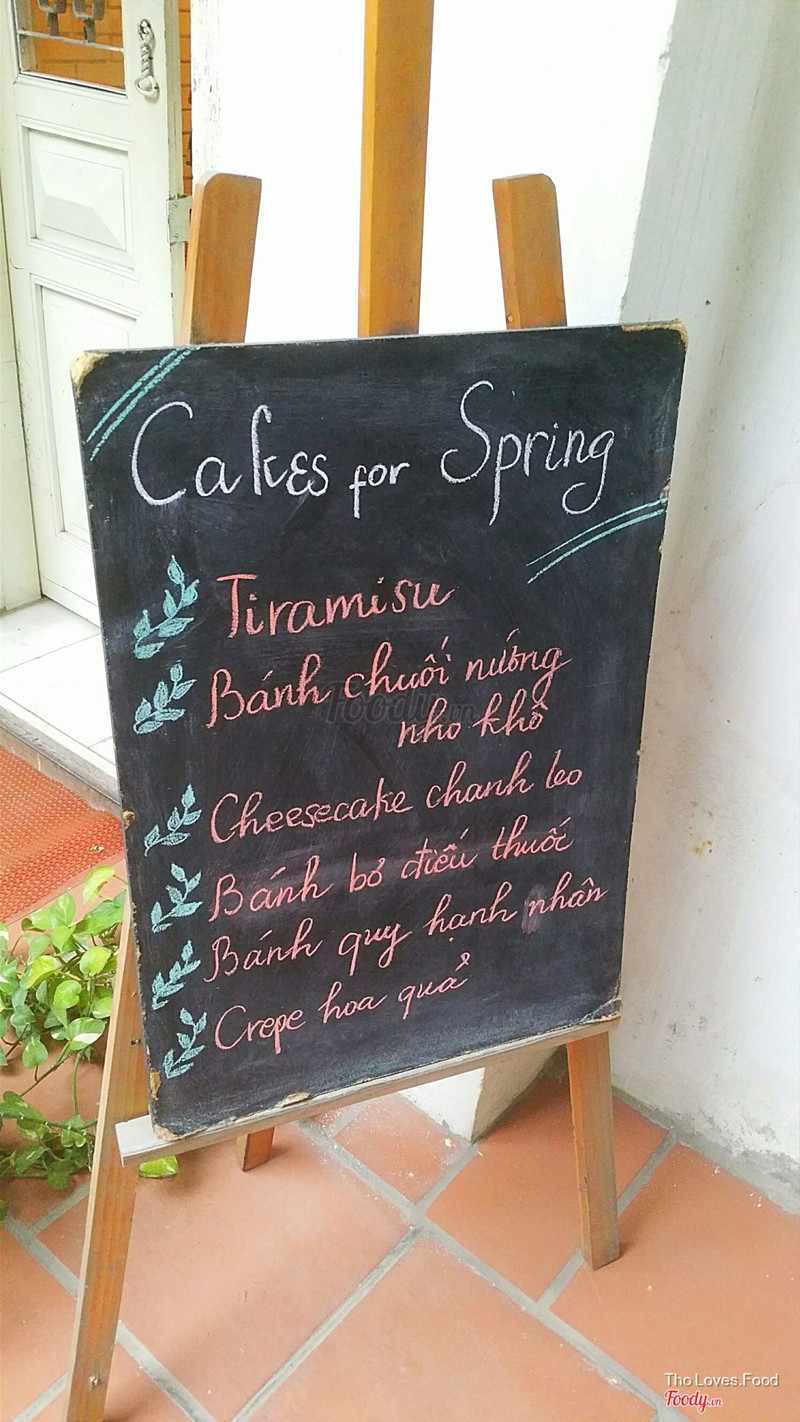 Cakes for Spring
Tiramisu
Bánh chuối nướng
nho khô
Cheesecake chanh leo
Bánh bơ điếu thuốc
Bánh quy hạnh nhân
Crepe hoa quả
Foody.vn
Tho Loves.Food
Foody.vn